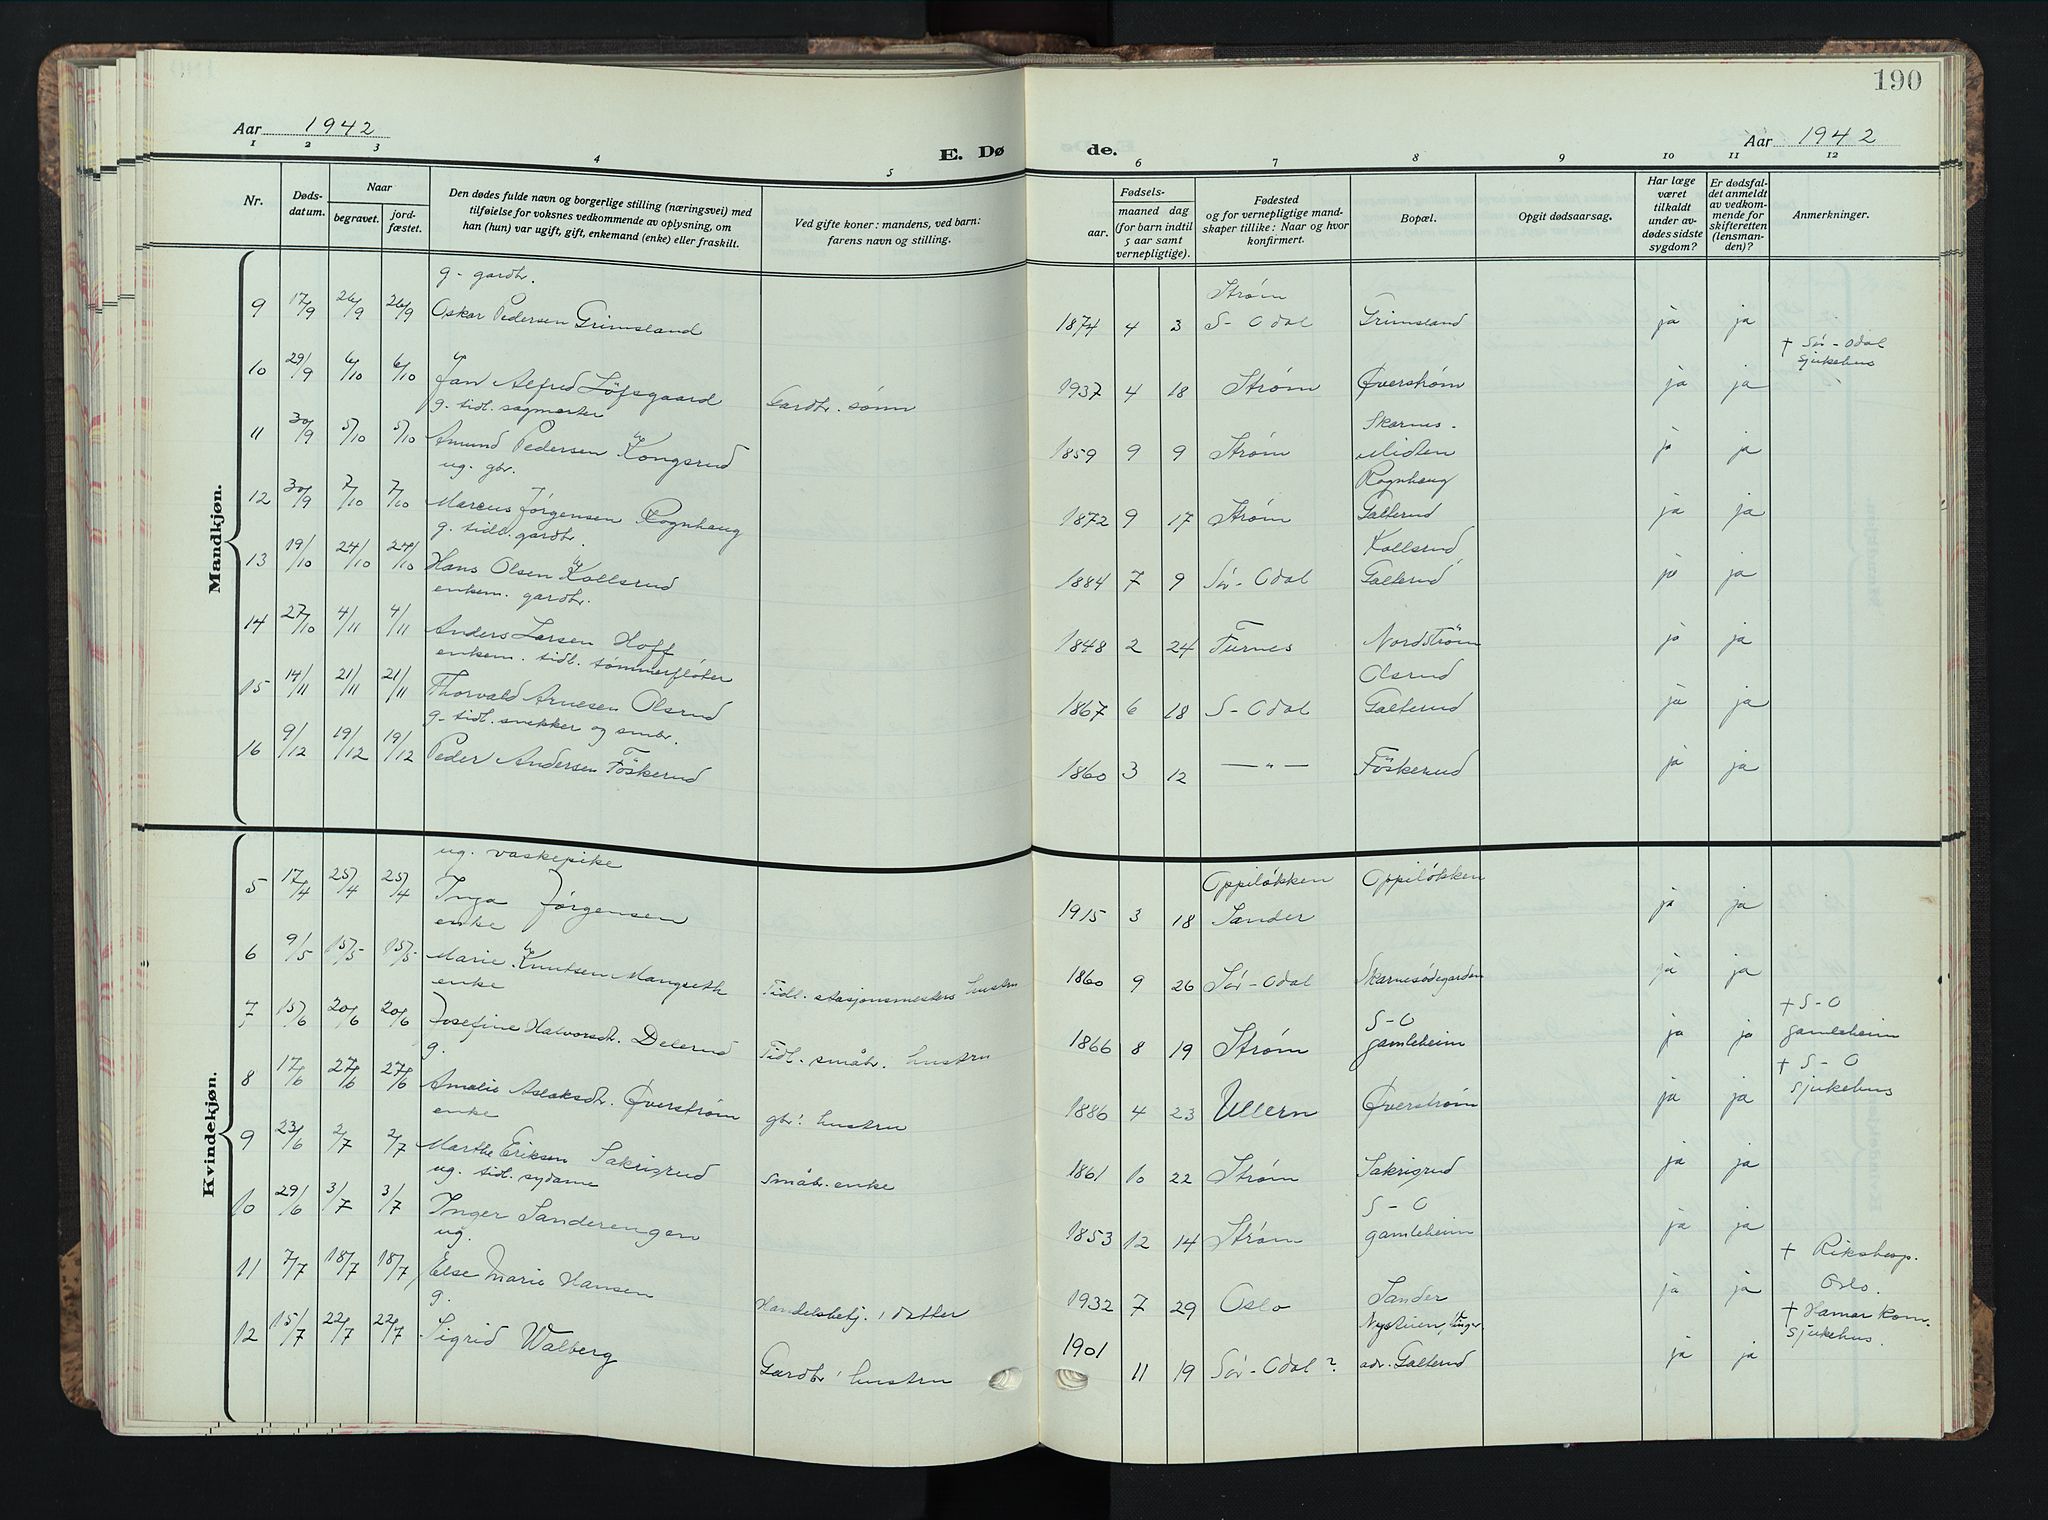 190
Aar 1942
E. Dø
de.
Aar 1942
1 2 3 4 5 6 7 8 9 10 11 12
Nr.
Døds-
datum.
Naar
begravet.
jord-
fæstet.
Den dødes fulde navn og borgerlige stilling (næringsvei) med
tilføielse for voksnes vedkommende av oplysning, om
han (hun) var ugift, gift, enkemand (enke) eller fraskilt.
Ved gifte koner: mandens, ved barn:
farens navn og stilling.
Fødsels-
aar.
maaned dag
(for barn indtil
5 aar samt
vernepligtige).
Fødested
og for vernepligtige mand-
skaper tillike: Naar og hvor
konfirmert.
Bopæl.
Opgit dødsaarsag.
Har læge
været
tilkaldt
under av-
dødes sidste
sygdom?
Er dødsfal-
det anmeldt
av vedkom-
mende for
skifteretten
(lensman-
den)?
Anmerkninger.
Mandkjøn.
g. gardbr.
Strøm
9 17/9 26/9 26/9 Oskar Pedersen Grimsland 1874 4 3 S-Odal Grimsland ja ja
† Sör-Odal
sjukehus
10 29/9 6/10 6/10 Jan Alfred Löfsgaard Gardbr. sønn 1937 4 18 Strøm Øverstrøm ja ja
g. tidl. sagmester
Skarnes-
11 30/9 5/10 5/10 Amund Pedersen Kongsrud 1859 9 9 Strøm Midten ja ja
ug. gbr.
Rognhaug
12 30/9 7/10 7/10 Marcus Jørgensen Rognhaug 1872 9 17 Strøm Galterud ja ja
g. tidl. gardbr.
Kollsrud,
13 19/10 24/10 24/10 Hans Olsen Kollsrud 1884 7 9 Sör-Odal Galterud ja ja
enkem. gardbr.
14 27/10 4/11 4/11 Anders Larsen Hoff 1848 2 24 Furnes Nordström ja ja
enkem. tidl. tømmerfløter
Olsrud
15 14/11 21/11 21/11 Thorvald Arnesen Olsrud 1867 6 18 S-Odal Galterud ja ja
g. tidl. snekker og smbr.
16 9/12 19/12 19/12 Peder Andersen Föskerud 1860 3 12 — " — Föskerud ja ja
Kvindekjøn.
ug. vaskepike
Oppiløkken Oppiløkken
5 17/4 25/4 25/4 Inga Jørgensen 1915 3 18 Sander ja ja
enke
6 9/5 15/5 15/5 Marie Knutsen Mangseth Tidl. stasjonsmesters hustru 1860 9 26 Sör-Odal Skarnesødegarden ja ja
enke
S-O
† S-O
7 15/6 20/6 20/6 Josefine Halvorsdr. Delerud Tidl. småbr. hustru 1866 8 19 Strøm gamleheim ja ja gamleheim
g.
† S-O
8 17/6 27/6 27/6 Amalie Aslaksdr. Øverstrøm gbr.' hustru 1886 4 23 Ullern Øverstrøm ja ja sjukehus
enke
9 23/6 2/7 2/7 Marthe Eriksen Sakrisrud Småbr. enke 1861 10 22 Strøm Sakrisrud ja ja
ug. tidl. sydame
S-O
10 29/6 3/7 3/7 Inger Sanderengen 1853 12 14 Strøm gamleheim ja ja
ug.
† Rikshosp.
11 7/7 18/7 18/7 Else Marie Hansen Handelsbetj.' datter 1932 7 29 Oslo Sander ja ja Oslo.
g.
† Hamar kom.
12 15/7 22/7 22/7 Sigrid Walberg Gardbr' hustru 1901 11 19 Sör-Odal? adr. Galterud ja ja sjukehus.